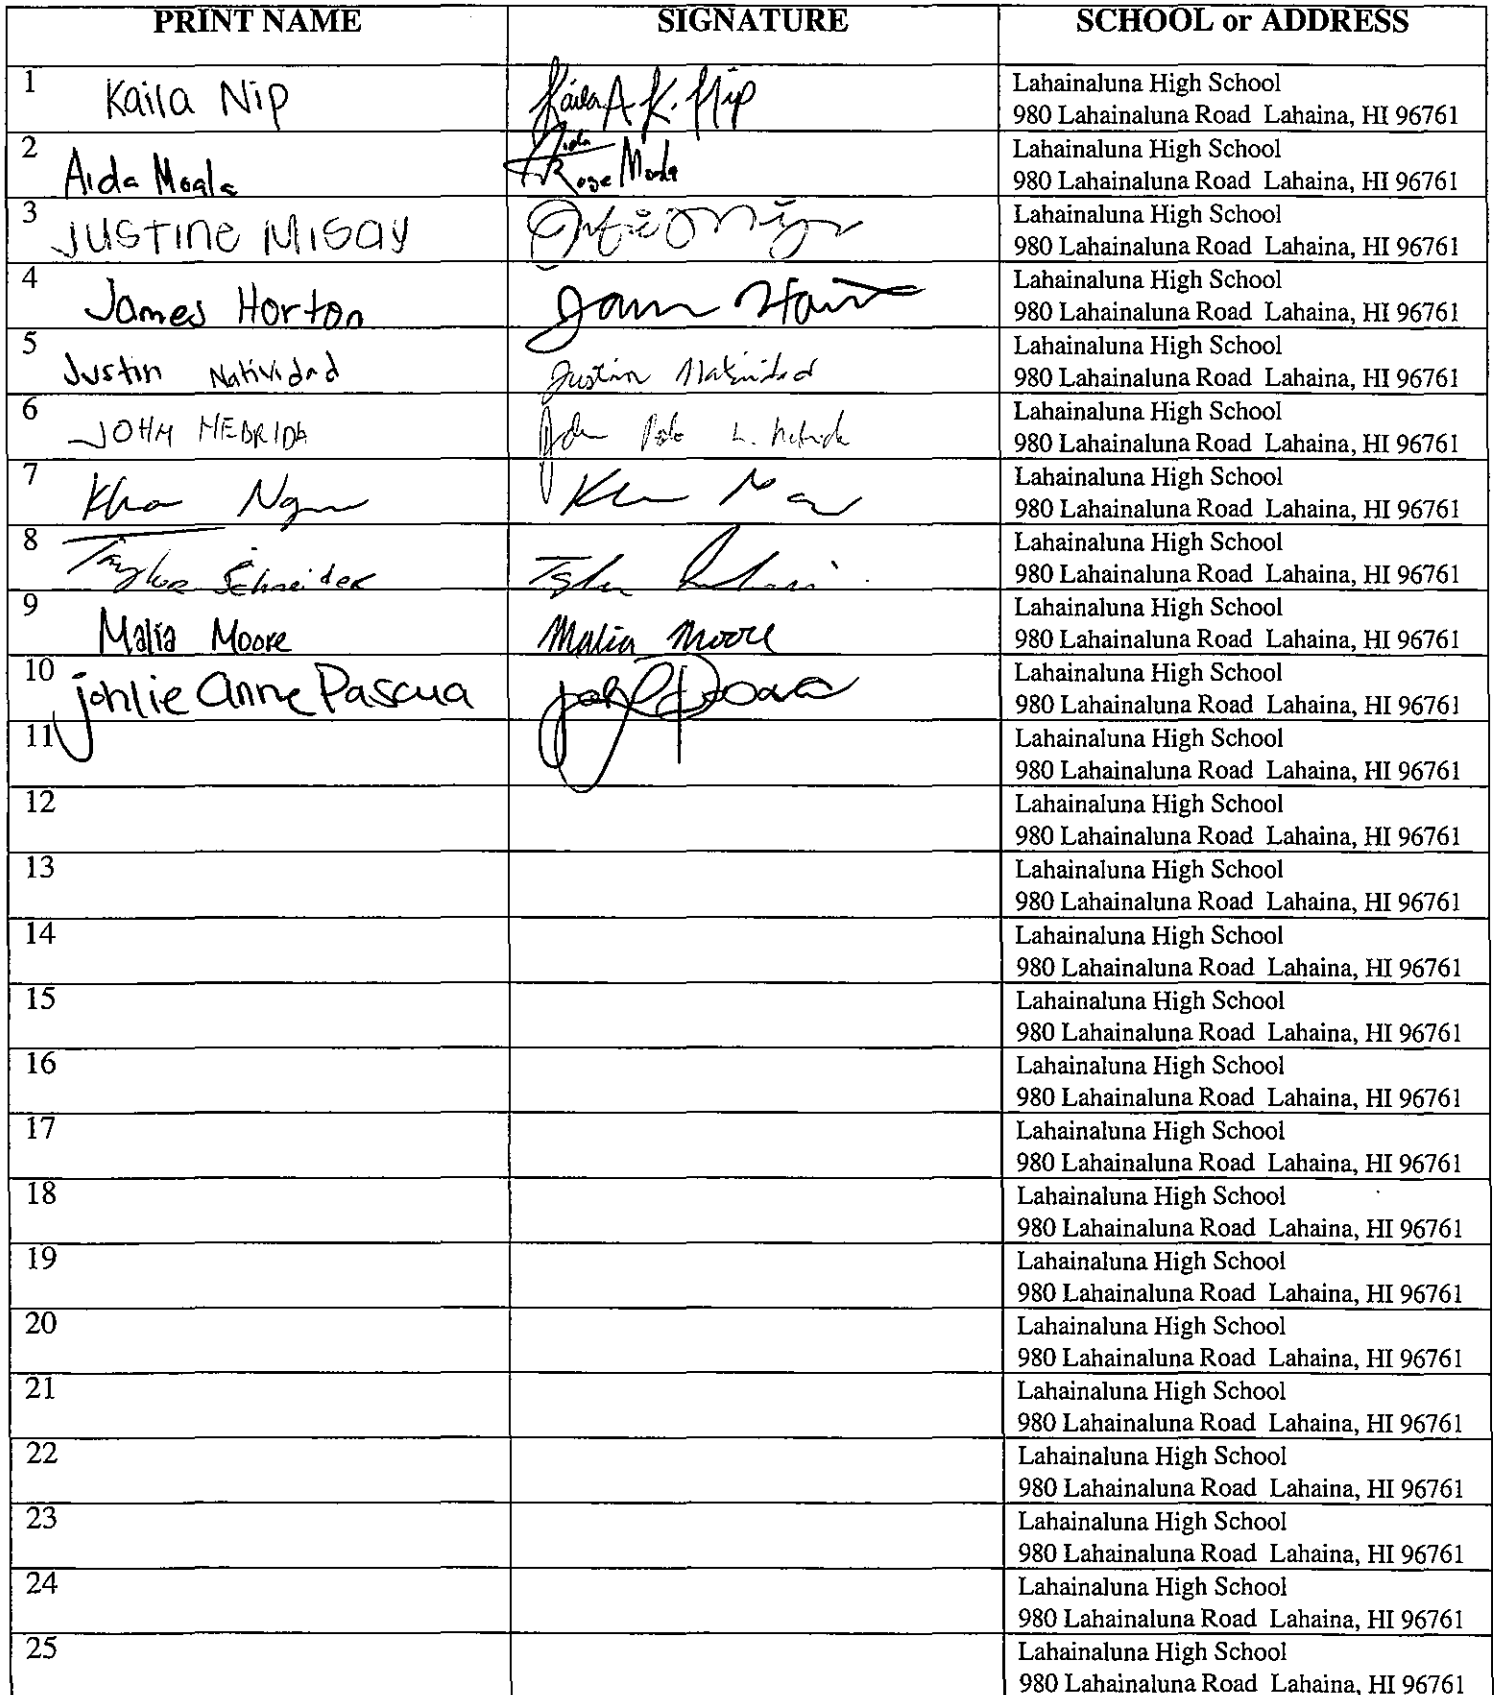 PRINT NAME SIGNATURE SCHOOL or ADDRESS
1 Kaila Nip Kaila A. K. Nip Lahainaluna High School
980 Lahainaluna Road Lahaina, HI 96761
2 Aida Moala Aida Rose Moala Lahainaluna High School
980 Lahainaluna Road Lahaina, HI 96761
3 JUSTINE MISAY Lahainaluna High School
980 Lahainaluna Road Lahaina, HI 96761
4 James Horton Lahainaluna High School
980 Lahainaluna Road Lahaina, HI 96761
5 Justin Natividad Justin Natividad Lahainaluna High School
980 Lahainaluna Road Lahaina, HI 96761
6 JOHN NEBRIDA Lahainaluna High School
980 Lahainaluna Road Lahaina, HI 96761
7 Lahainaluna High School
980 Lahainaluna Road Lahaina, HI 96761
8 Taylor Schneider Lahainaluna High School
980 Lahainaluna Road Lahaina, HI 96761
9 Malia Moore Malia Moore Lahainaluna High School
980 Lahainaluna Road Lahaina, HI 96761
10 johlie Anne Pascua Lahainaluna High School
980 Lahainaluna Road Lahaina, HI 96761
11 Lahainaluna High School
980 Lahainaluna Road Lahaina, HI 96761
12 Lahainaluna High School
980 Lahainaluna Road Lahaina, HI 96761
13 Lahainaluna High School
980 Lahainaluna Road Lahaina, HI 96761
14 Lahainaluna High School
980 Lahainaluna Road Lahaina, HI 96761
15 Lahainaluna High School
980 Lahainaluna Road Lahaina, HI 96761
16 Lahainaluna High School
980 Lahainaluna Road Lahaina, HI 96761
17 Lahainaluna High School
980 Lahainaluna Road Lahaina, HI 96761
18 Lahainaluna High School
980 Lahainaluna Road Lahaina, HI 96761
19 Lahainaluna High School
980 Lahainaluna Road Lahaina, HI 96761
20 Lahainaluna High School
980 Lahainaluna Road Lahaina, HI 96761
21 Lahainaluna High School
980 Lahainaluna Road Lahaina, HI 96761
22 Lahainaluna High School
980 Lahainaluna Road Lahaina, HI 96761
23 Lahainaluna High School
980 Lahainaluna Road Lahaina, HI 96761
24 Lahainaluna High School
980 Lahainaluna Road Lahaina, HI 96761
25 Lahainaluna High School
980 Lahainaluna Road Lahaina, HI 96761